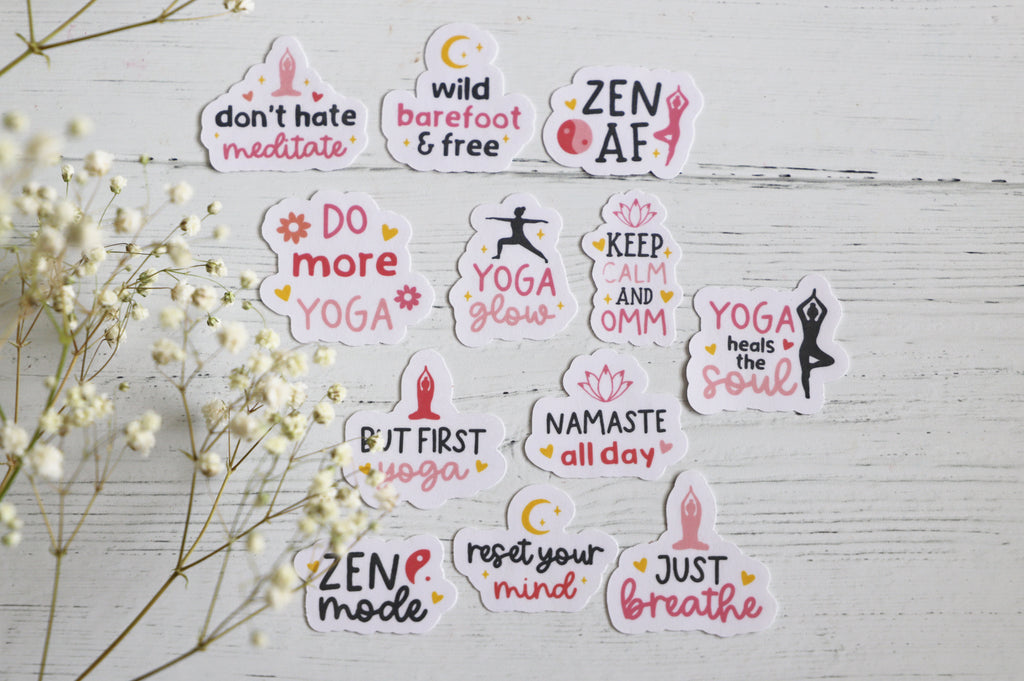 don't hate
meditate
wild
barefoot
& free
ZEN
AF
DO
more
YOGA
YOGA
glow
KEEP
CALM
AND
OMM
YOGA
heals
the
soul
BUT FIRST
yoga
NAMASTE
all day
ZEN
mode
reset your
mind
JUST
breathe